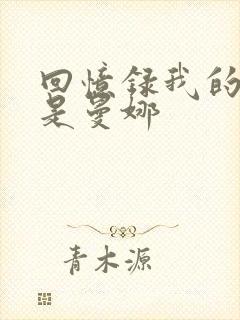 回憶録我的
是曼娜
青木源